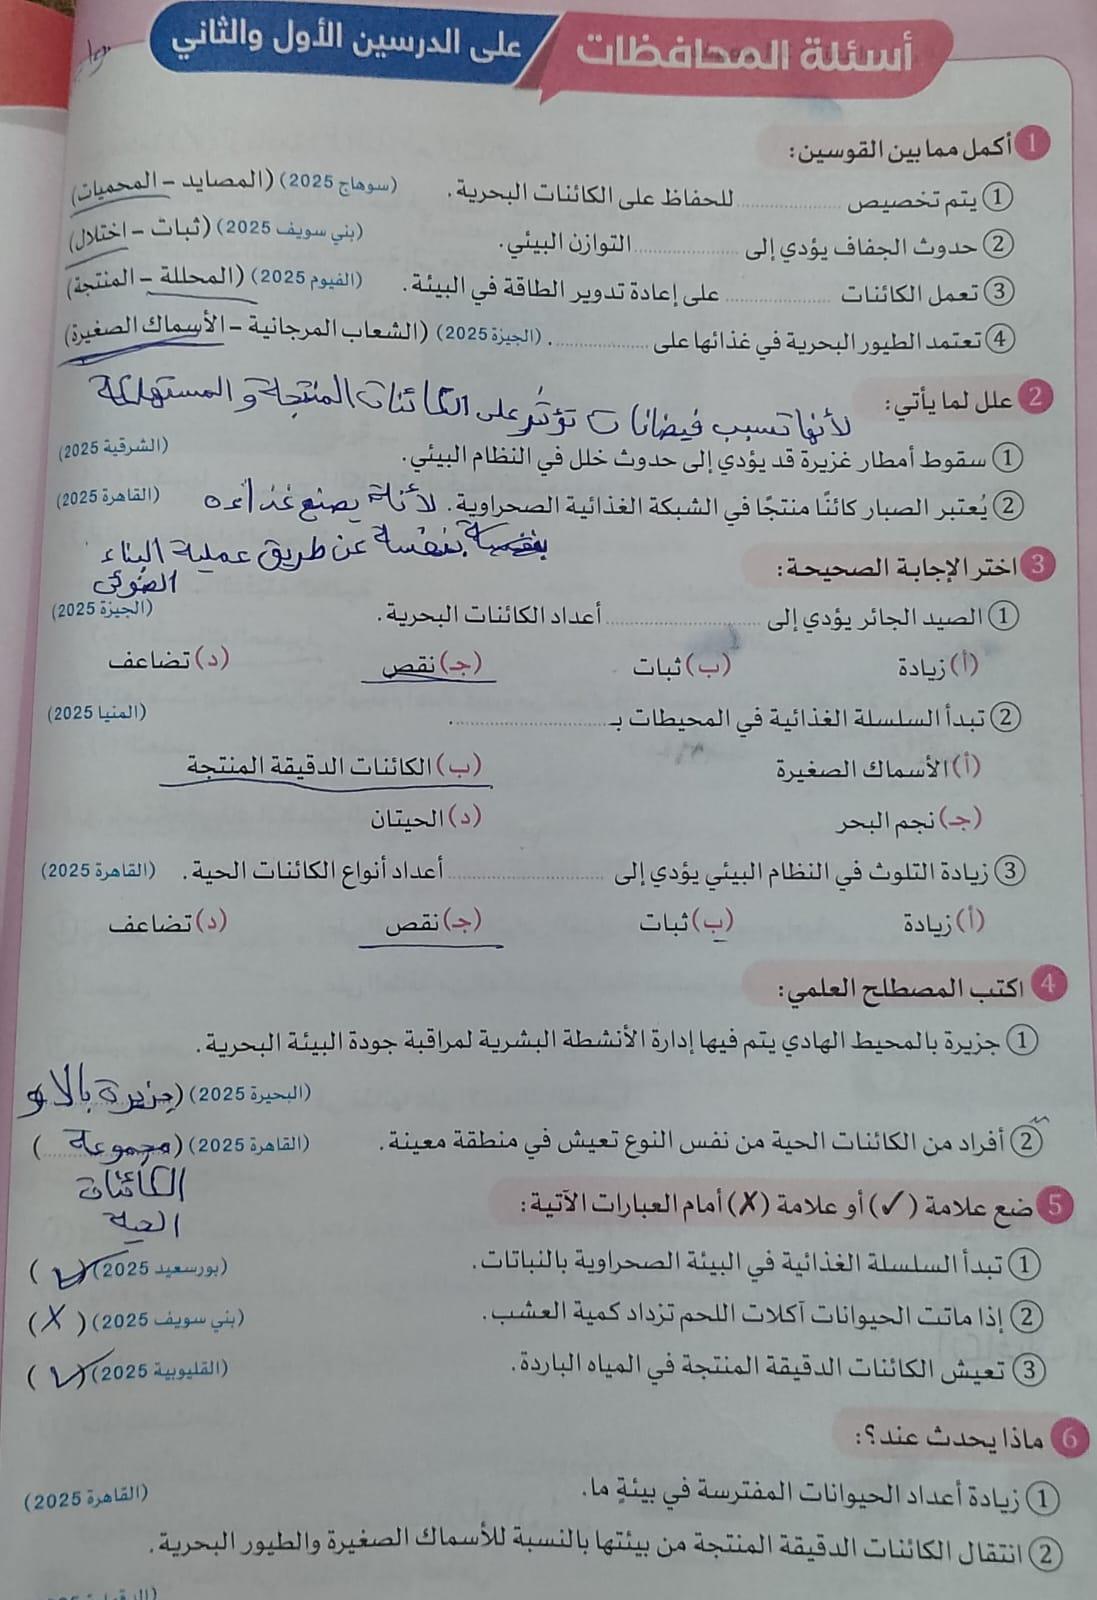 أسئلة المحافظات على الدرسين الأول والثاني
1 أكمل مما بين القوسين:
① يتم تخصيص .................. للحفاظ على الكائنات البحرية. (سوهاج 2025) (المصايد - المحميات)
② حدوث الجفاف يؤدي إلى .................. التوازن البيئي. (بني سويف 2025) (ثبات - اختلال)
③ تعمل الكائنات .................. على إعادة تدوير الطاقة في البيئة. (الفيوم 2025) (المحللة - المنتجة)
④ تعتمد الطيور البحرية في غذائها على .................. . (الجيزة 2025) (الشعاب المرجانية - الأسماك الصغيرة)
2 علل لما يأتي:
لأنها تسبب فيضانات تؤثر على الكائنات المنتجة و المستهلكة
① سقوط أمطار غزيرة قد يؤدي إلى حدوث خلل في النظام البيئي. (الشرقية 2025)
② يُعتبر الصبار كائنًا منتجًا في الشبكة الغذائية الصحراوية. (القاهرة 2025)
لأنة يصنع غذاءه
بنفسة عن طريق عملية البناء
الضوئى
3 اختر الإجابة الصحيحة:
① الصيد الجائر يؤدي إلى .................. أعداد الكائنات البحرية. (الجيزة 2025)
(أ) زيادة (ب) ثبات (جـ) نقص (د) تضاعف
② تبدأ السلسلة الغذائية في المحيطات بـ .................. . (المنيا 2025)
(أ) الأسماك الصغيرة (ب) الكائنات الدقيقة المنتجة
(جـ) نجم البحر (د) الحيتان
③ زيادة التلوث في النظام البيئي يؤدي إلى .................. أعداد أنواع الكائنات الحية. (القاهرة 2025)
(أ) زيادة (ب) ثبات (جـ) نقص (د) تضاعف
4 اكتب المصطلح العلمي:
① جزيرة بالمحيط الهادي يتم فيها إدارة الأنشطة البشرية لمراقبة جودة البيئة البحرية.
(البحيرة 2025) (جزيرة بالاو)
② أفراد من الكائنات الحية من نفس النوع تعيش في منطقة معينة. (القاهرة 2025) (مجموعة)
الكائنات
الحية
5 ضع علامة (✓) أو علامة (✗) أمام العبارات الآتية:
① تبدأ السلسلة الغذائية في البيئة الصحراوية بالنباتات. (بورسعيد 2025) (✓)
② إذا ماتت الحيوانات آكلات اللحم تزداد كمية العشب. (بني سويف 2025) (X)
③ تعيش الكائنات الدقيقة المنتجة في المياه الباردة. (القليوبية 2025) (✓)
6 ماذا يحدث عند؟:
① زيادة أعداد الحيوانات المفترسة في بيئةٍ ما. (القاهرة 2025)
② انتقال الكائنات الدقيقة المنتجة من بيئتها بالنسبة للأسماك الصغيرة والطيور البحرية.